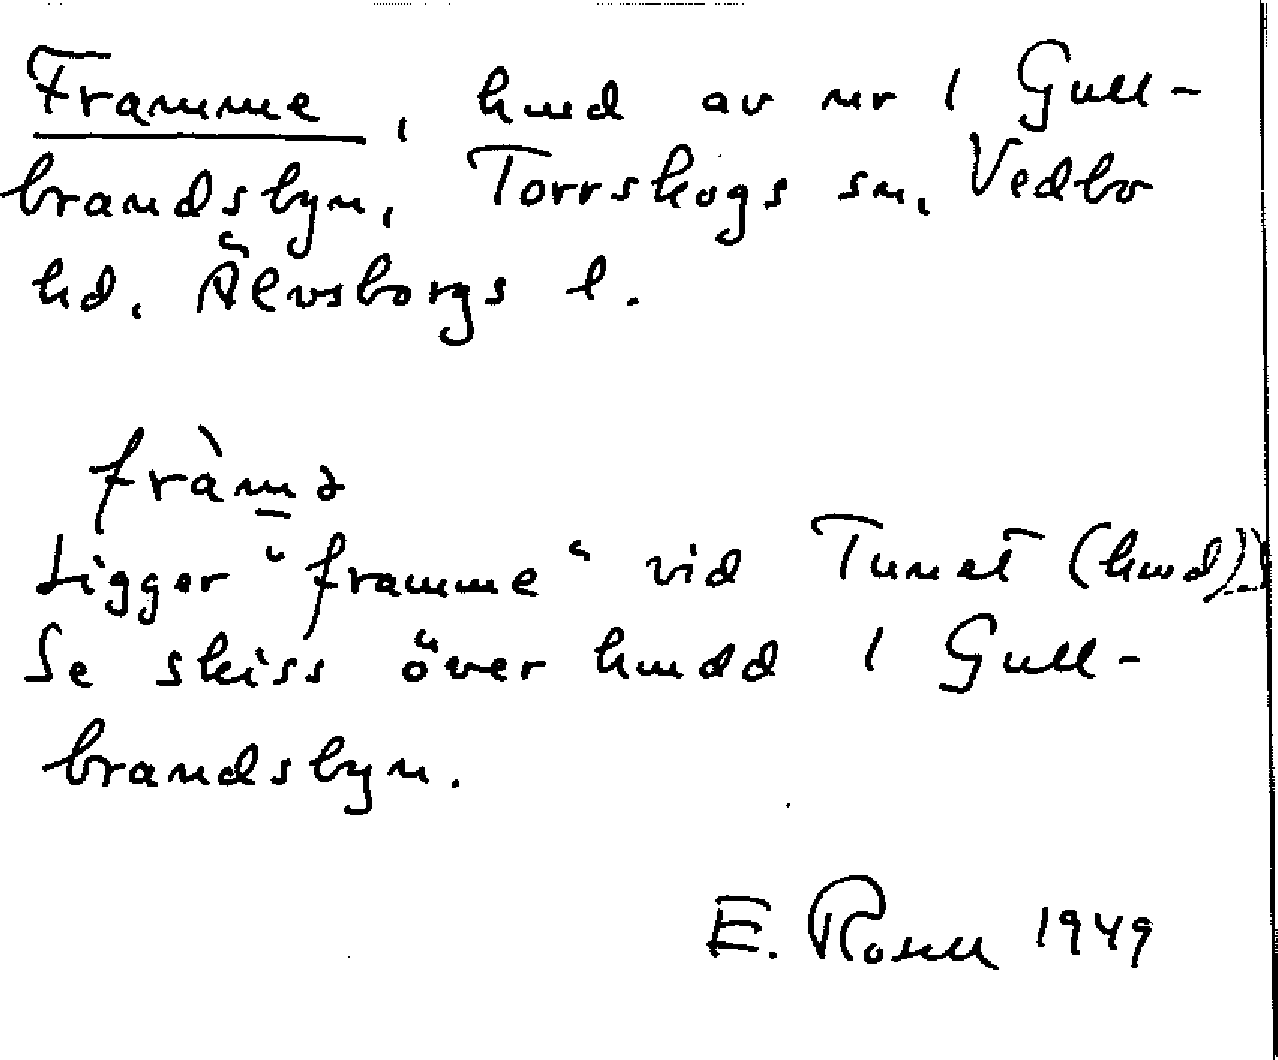 Framme, hmd av nr 1 Gull-
brandsbyn, Torrskogs sn, Vedbo
hd, Älvsborgs l.
fràm̲ə
Ligger "framme" vid Tunet (hmd))
Se skiss över hmdd 1 Gull-
brandsbyn.
E. Rosell 1949